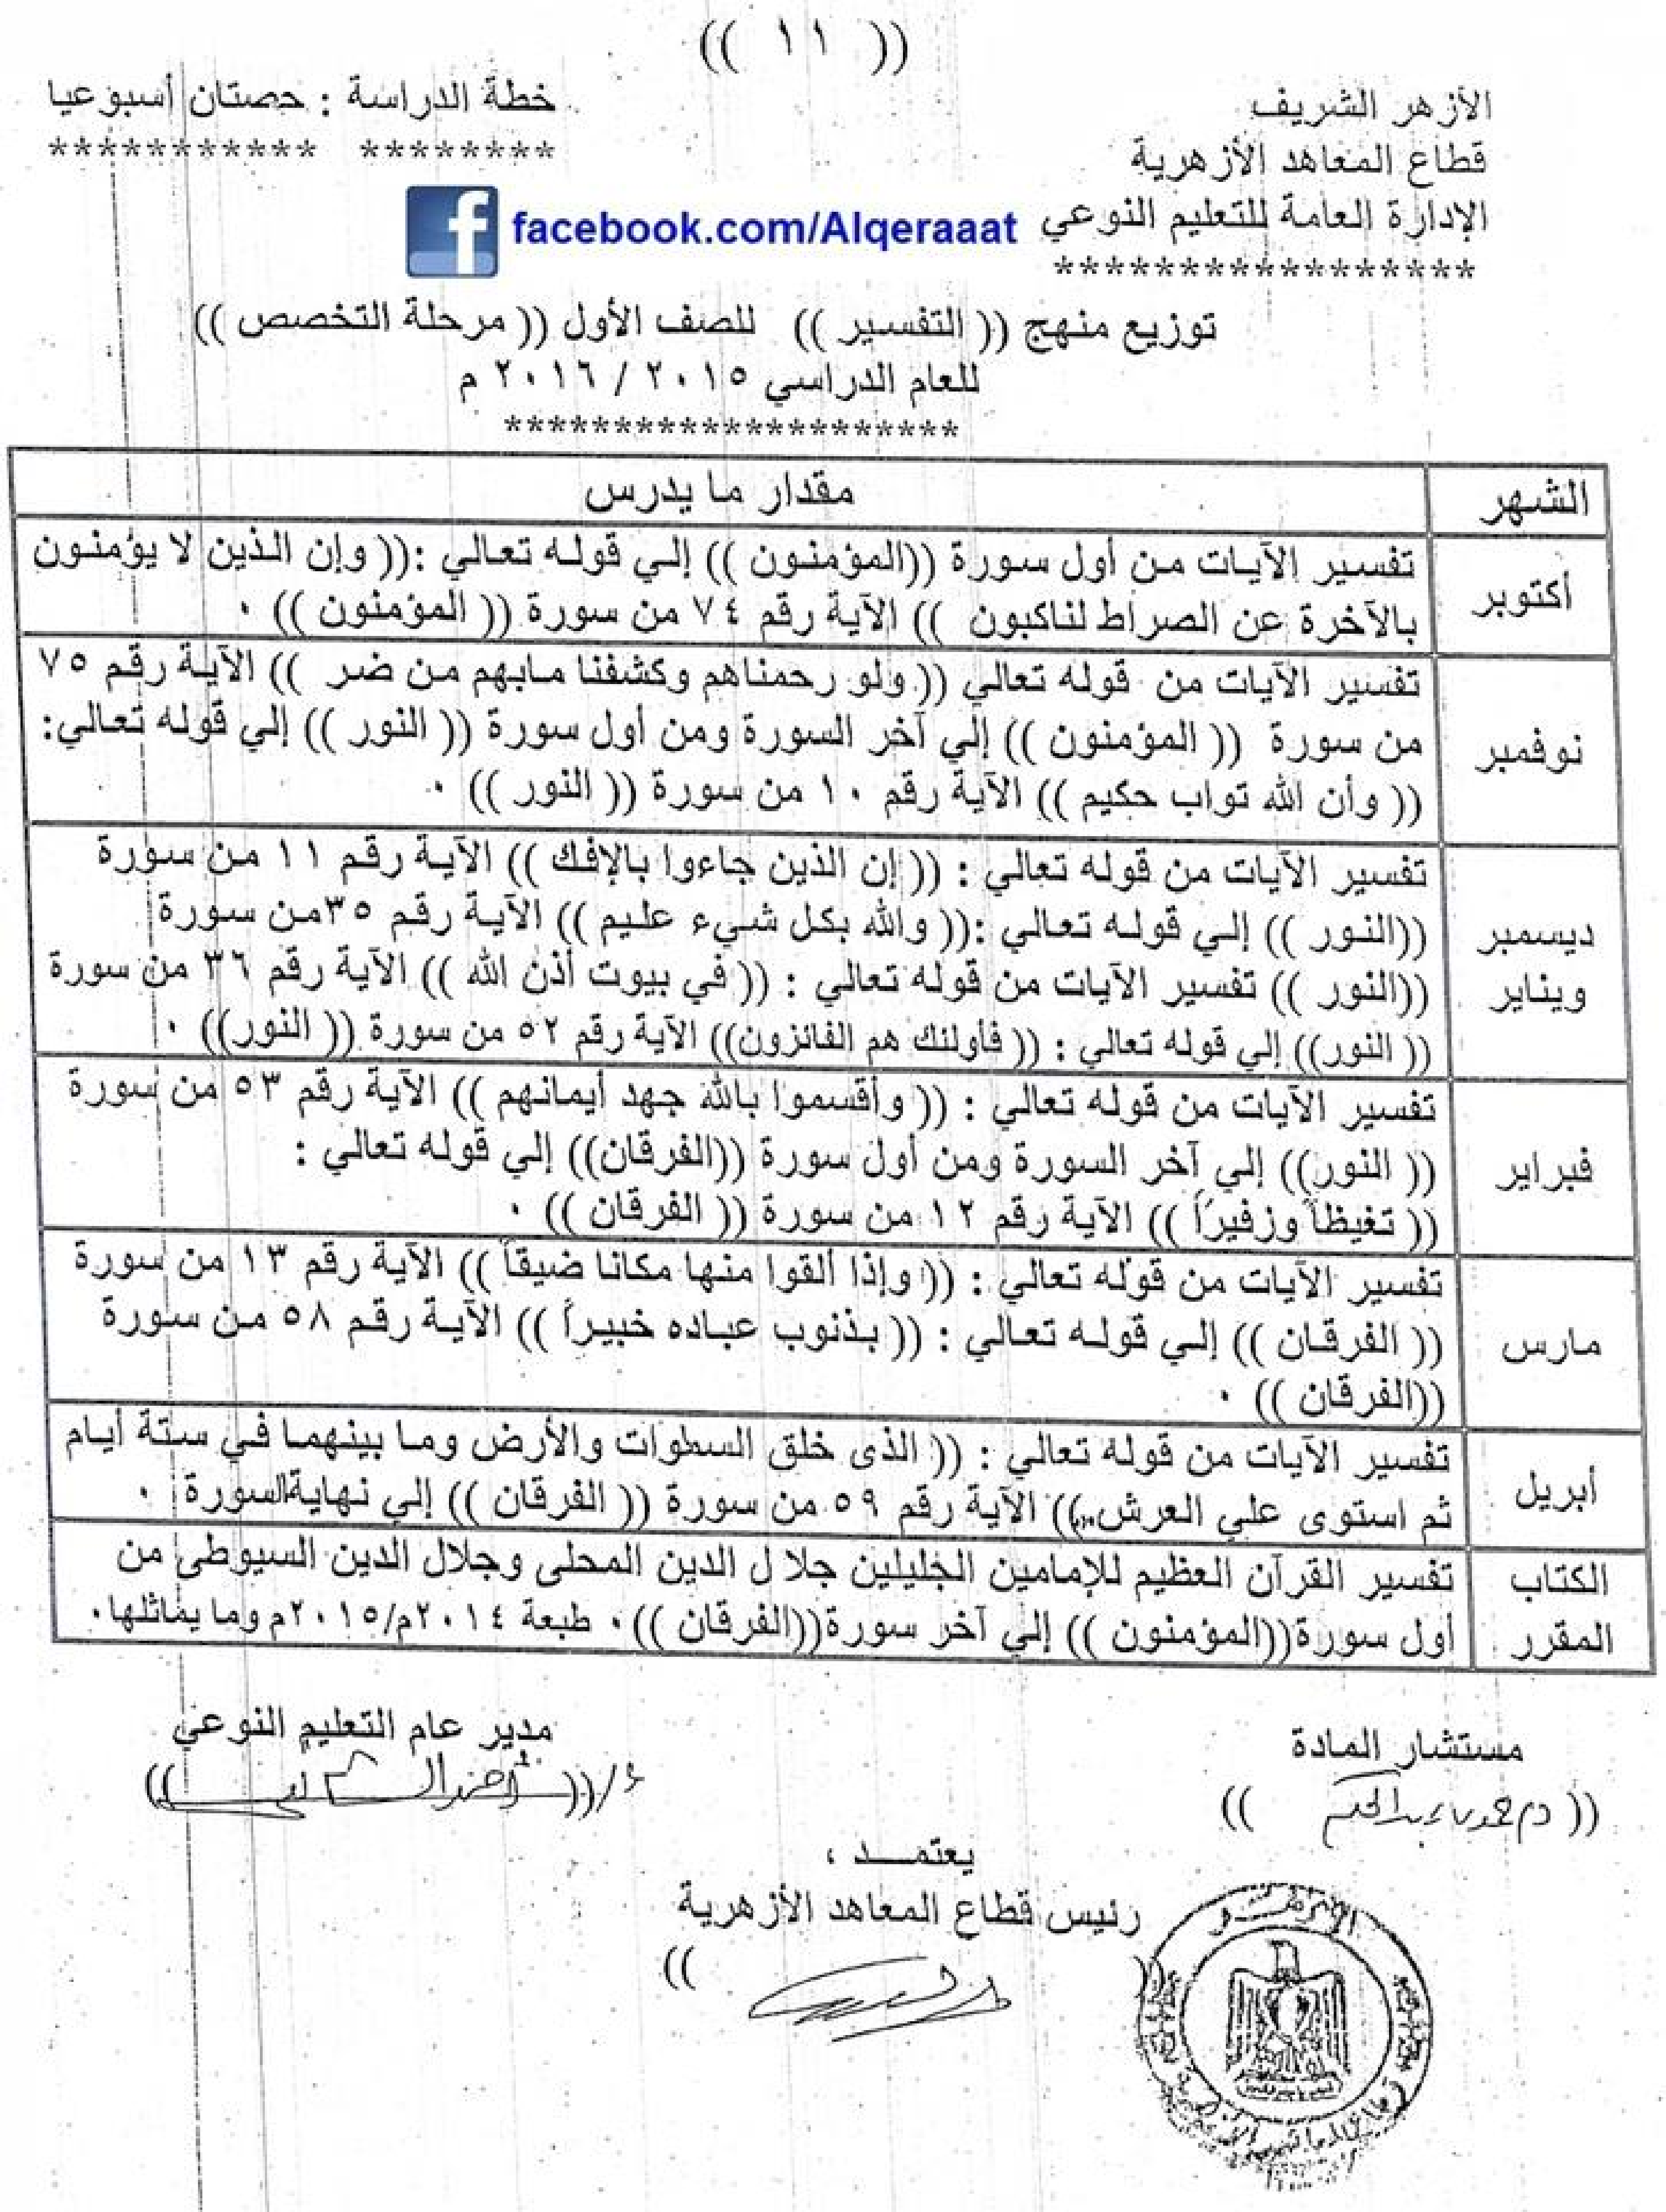 (( ١١ ))
الأزهر الشريف
خطة الدراسة : حصتان أسبوعيا
قطاع المعاهد الأزهرية
******** ***********
الإدارة العامة للتعليم النوعي
facebook.com/Alqeraaat
*****************
توزيع منهج (( التفسير )) للصف الأول (( مرحلة التخصص ))
للعام الدراسي ٢٠١٥ / ٢٠١٦ م
*********************
الشهر
مقدار ما يدرس
أكتوبر
تفسير الآيات من أول سورة ((المؤمنون )) إلي قوله تعالي :(( وإن الذين لا يؤمنون
بالآخرة عن الصراط لناكبون )) الآية رقم ٧٤ من سورة (( المؤمنون )) .
نوفمبر
تفسير الآيات من قوله تعالي (( ولو رحمناهم وكشفنا مابهم من ضر )) الآية رقم ٧٥
من سورة (( المؤمنون )) إلي آخر السورة ومن أول سورة (( النور )) إلي قوله تعالي:
(( وأن الله تواب حكيم )) الآية رقم ١٠ من سورة (( النور )) .
ديسمبر
ويناير
تفسير الآيات من قوله تعالي : (( إن الذين جاءوا بالإفك )) الآية رقم ١١ من سورة
((النور )) إلي قوله تعالي :(( والله بكل شيء عليم )) الآية رقم ٣٥من سورة
((النور )) تفسير الآيات من قوله تعالي : (( في بيوت أذن الله )) الآية رقم ٣٦ من سورة
(( النور)) إلي قوله تعالي : (( فأولئك هم الفائزون)) الآية رقم ٥٢ من سورة (( النور)) .
فبراير
تفسير الآيات من قوله تعالي : (( وأقسموا بالله جهد أيمانهم )) الآية رقم ٥٣ من سورة
(( النور)) إلي آخر السورة ومن أول سورة ((الفرقان)) إلي قوله تعالي :
(( تغيظاً وزفيراً )) الآية رقم ١٢ من سورة (( الفرقان )) .
مارس
تفسير الآيات من قوله تعالي : (( وإذا ألقوا منها مكانا ضيقاً )) الآية رقم ١٣ من سورة
(( الفرقان )) إلي قوله تعالي : (( بذنوب عباده خبيراً )) الآية رقم ٥٨ من سورة
((الفرقان )) .
أبريل
تفسير الآيات من قوله تعالي : (( الذى خلق السموات والأرض وما بينهما في ستة أيام
ثم استوى علي العرش..)) الآية رقم ٥٩ من سورة (( الفرقان )) إلي نهايةالسورة .
الكتاب
المقرر
تفسير القرآن العظيم للإمامين الجليلين جلال الدين المحلى وجلال الدين السيوطى من
أول سورة((المؤمنون )) إلي آخر سورة((الفرقان )). طبعة ٢٠١٤م/٢٠١٥م وما يماثلها.
مستشار المادة
مدير عام التعليم النوعي
يعتمـــد ،
رئيس قطاع المعاهد الأزهرية